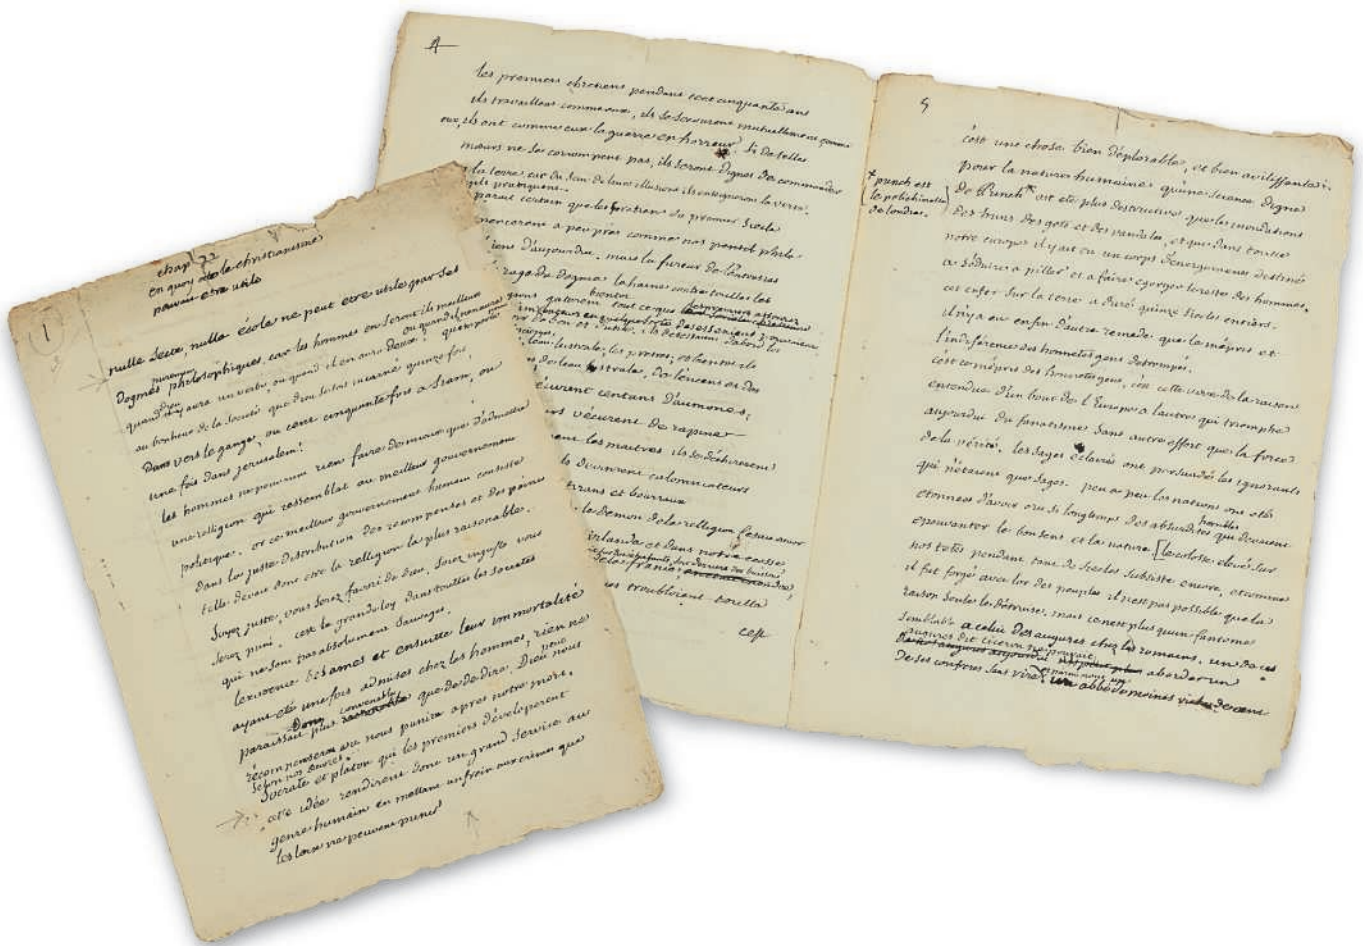 1
chap 22
en quoy le christianisme
pouvait etre utile
nulle secte, nulle école ne peut etre utile que par ses
dogmes purement philosophiques. car les hommes en seront ils meilleurs
quand dieu aura un verbe, ou quand il en aura deux, ou quand il n'en aura? qu'importe
au bonheur de la société que dieu se soit incarné quinze fois
dans vers le gange, ou cent cinquante fois a Siam, ou
une fois dans jerusalem!
les hommes ne pouvaient rien faire de mieux que d'admettre
une relligion qui ressemblat au meilleur gouvernement
politique. or ce meilleur gouvernement humain consiste
dans la juste distribution des recompenses et des peines
telle devait donc etre la relligion la plus raisonable.
Soyez juste, vous serez favori de dieu, soyez injuste vous
serez puni. c'est la grande loy dans touttes les societés
qui ne sont pas absolument sauvages.
l'existence des ames et ensuitte leur immortalité
ayant été une fois admises chez les hommes, rien ne
paraissait plus convenable que de dire, Dieu peut nous
récompenser ou nous punir apres notre mort,
selon nos œuvres.
Socrate et platon qui les premiers déveloperent
cette idée rendirent donc un grand service au
genre humain en mettant un frein aux crimes que
les loix ne peuvent punir
4
les premiers chretiens pendant cent cinquante ans
ils travaillent comme eux, ils se secourent mutuellement comme
eux, ils ont comme eux la guerre en horreur. Si de telles
mœurs ne se corrompent pas, ils seront dignes de commander
a la terre car du sein de leurs illusions ils enseigneront la vertu
qu'ils pratiquent.
parait certain que les chretiens du premier siecle
mencerent a peu pres comme nos pensil phila-
iens d'aujourdui. mais la fureur de l'entousiasme
rage du dogme la haine contre touttes les
gions gaterent bientot tout ce que
eau lustrale, les pretres, et bientot ils
de l'eau lustrale, de l'encens et des
vécurent cent ans d'aumones,
vécurent de rapine
ent les maitres ils se déchirerent
ils devinrent calomniateurs
tirans et bourreaux
le demon de la relligion
irlande et dans notre corse
de la france,
troubloient tout la
cest
5
c'est une chose bien déplorable, et bien avilissante
pour la nature humaine qu'une science digne
de Punch+ ait été plus destructive que les inondations
+ punch est
le polichinelle
de londres.
des huns des gots et des vandales, et que dans toutte
notre europe il y ait eu un corps d'energumenes destinés
a séduire a piller et a faire egorger le reste des hommes.
cet enfer sur la terre a duré quinze siecles entiers.
il n'y a eu enfin d'autre remede que le mépris et
l'indiférence des honnetes gens detrompés.
c'est ce mépris des honnetes gens, c'est cette voix de la raison
entendue d'un bout de l'Europe a l'autre qui triomphe
aujourdui du fanatisme sans autre effort que la force
de la vérité. les sages éclairés ont persuadé les ignorants
qui n'étaient que sages. peu a peu les nations ont été
etonnées d'avoir cru si longtemps des absurdités horribles qui devaient
epouvanter le bon sens et la nature [le colosse elevé sur
nos tetes pendant tant de siecles subsiste encore, et comme
il fut forgé avec l'or des peuples il n'est pas possible que la
raison seule le détruise. mais ce n'est plus qu'un fantome
semblable a celui des augures chez les romains. un de ces
augures dit ciceron ne pouvait aborder un
de ses confreres sans rire, et parmi nous un abbé de moines riche de cent